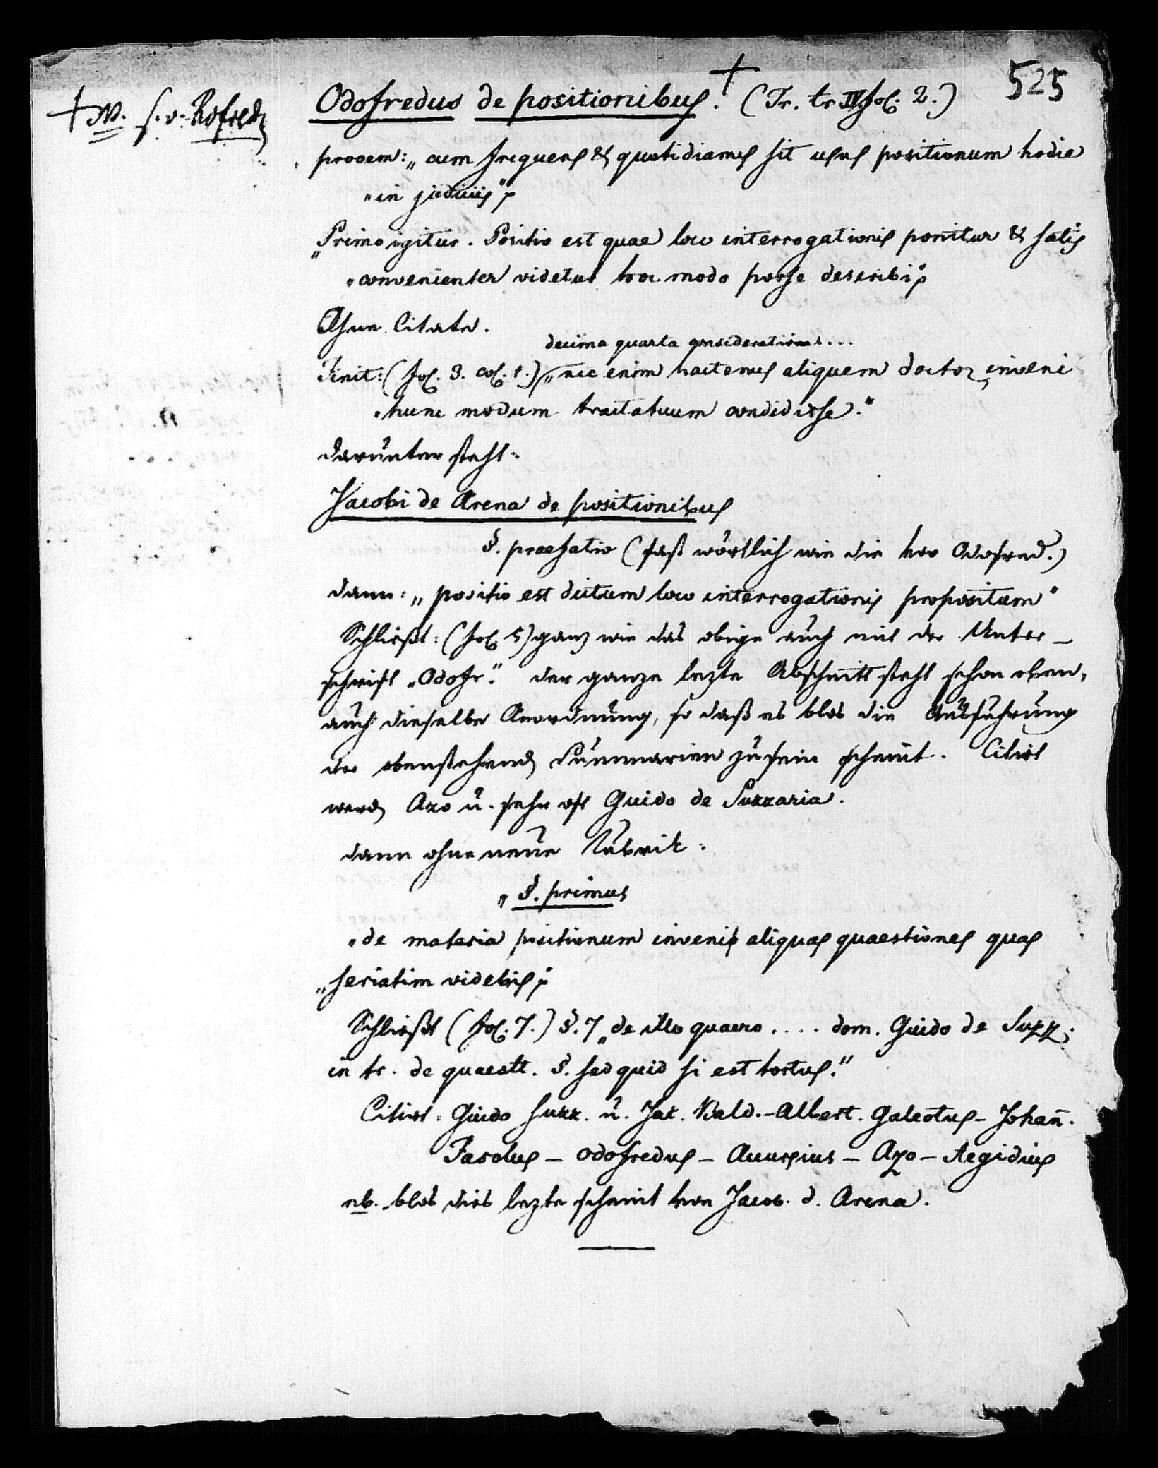 525
Odofredus de positionibus. † (Tr. tr. IV fol. 2.)
† N. s. v. Rofred.
prooem: „cum frequens & quotidianus sit usus positionum hodie
„in judiciis“;
„Primo igitur. Positio est quae loco interrogationis ponitur & satis
„convenienter videtur hoc modo posse describi“;
Ohne Citate.
decima quarta consideratione ...
Finit: (fol. 3. col. 1.) „nec enim hactenus aliquem doctor. inveni
„hunc modum tractatuum condidisse.“
darunter steht:
Jacobi de Arena de positionibus
§. praefatio (fast wörtlich wie die bey Odofred.)
dann: „positio est dictum loco interrogationis propositum“
Schließt: (fol. 5) ganz wie das obige auch mit der Unter-
schrift „Odofr.“ der ganze lezte Abschnitt steht schon oben,
auch dieselbe Anordnung, so daß es blos die Ausführung
der obenstehenden Summarien zu sein scheint. Citirt
werden Azo u. sehr oft Guido de Suzzaria.
dann ohne neue Rubrik:
„§. primus
„de materia positionum invenis aliquas quaestiones quas
„seriatim videbis“;
Schließt (fol. 7.) §. 7 „de illo quaero .... dom. Guido de Suzz.
in tr. de quaestt. §. sed quid si est tortus.“
Citirt: Guido Suzz. u. Jak. Bald. – Albert. Galeotus – Johann.
Fasolus – Odofredus – Accursius – Azo – Aegidius
nb. blos dies lezte scheint von Jacob. d. Arena.